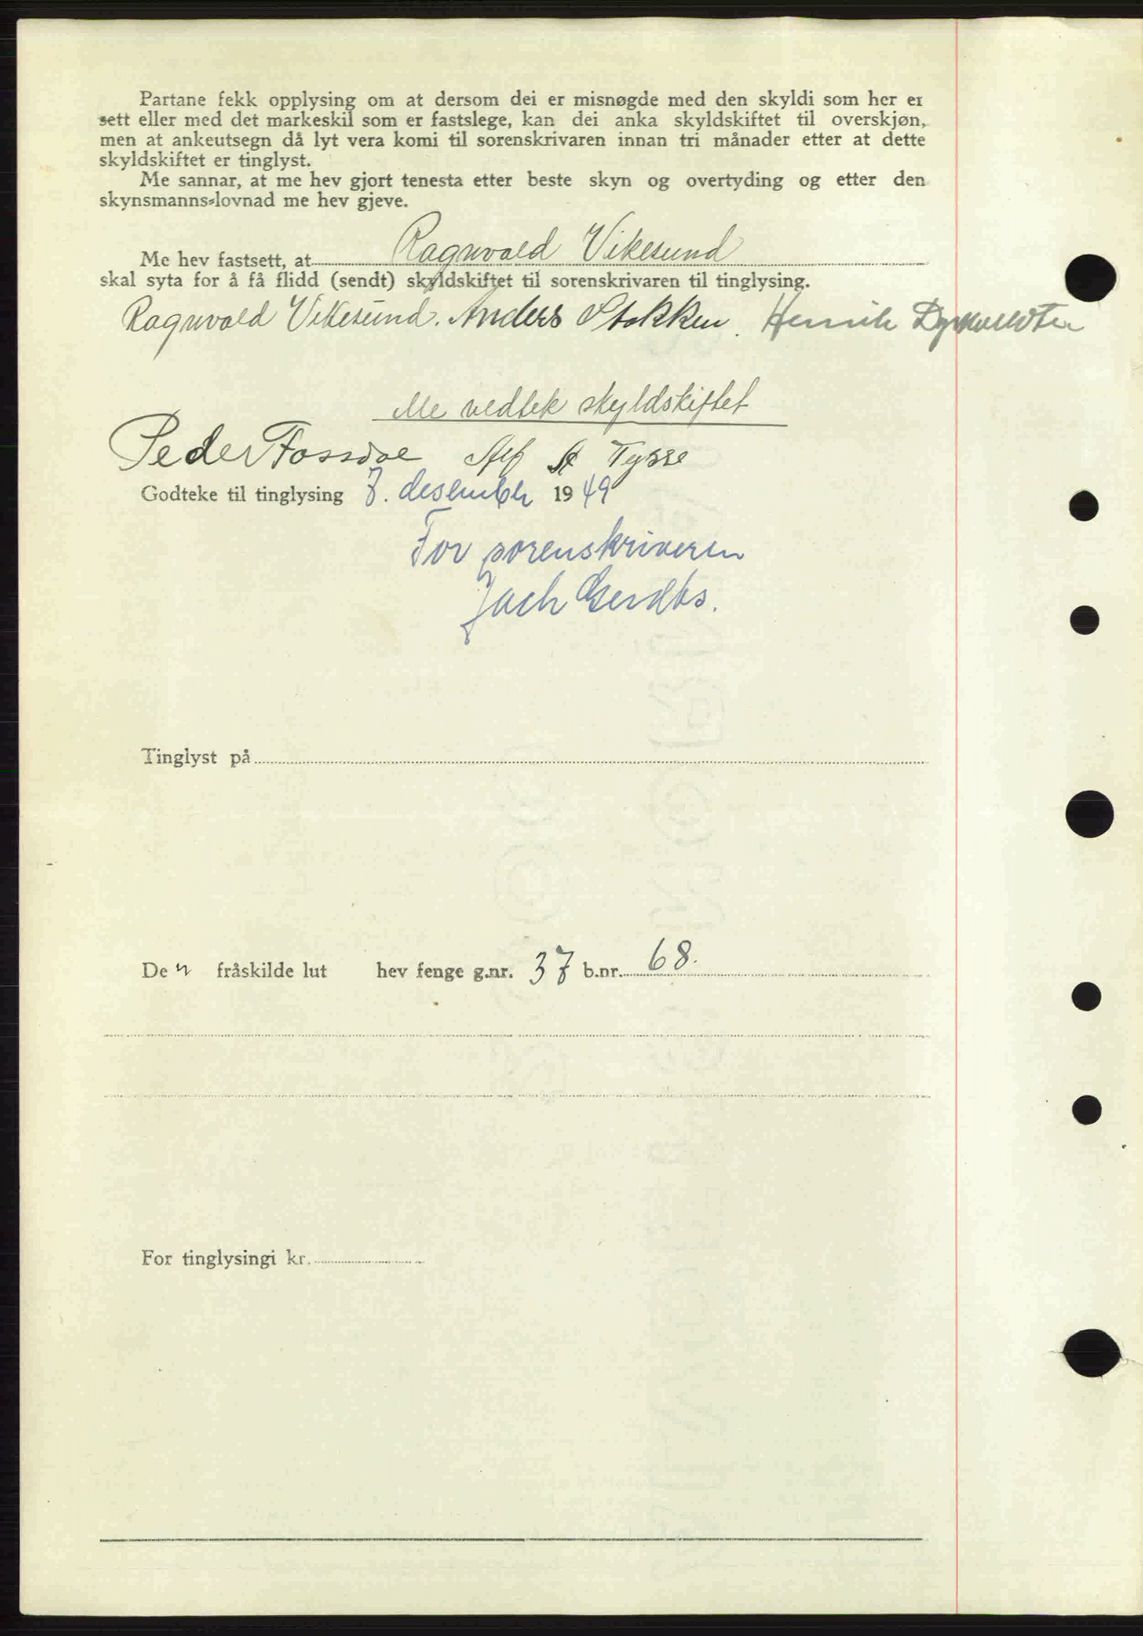 Partane fekk opplysing om at dersom dei er misnøgde med den skyldi som her er
sett eller med det markeskil som er fastslege, kan dei anka skyldskiftet til overskjøn,
men at ankeutsegn då lyt vera komi til sorenskrivaren innan tri månader etter at dette
skyldskiftet er tinglyst.
Me sannar, at me hev gjort tenesta etter beste skyn og overtyding og etter den
skynsmanns-lovnad me hev gjeve.
Me hev fastsett, at Ragnvald Vikesund
skal syta for å få flidd (sendt) skyldskiftet til sorenskrivaren til tinglysing.
Ragnvald Vikesund. Anders Stokken. Henrik
Me vedtek skyldskiftet
Peder Fossdal Alf Tysse
Godteke til tinglysing 7. desember 1949
For sorenskriveren
Tinglyst på
De n fråskilde lut hev fenge g.nr. 37 b.nr. 68.
For tinglysingi kr.